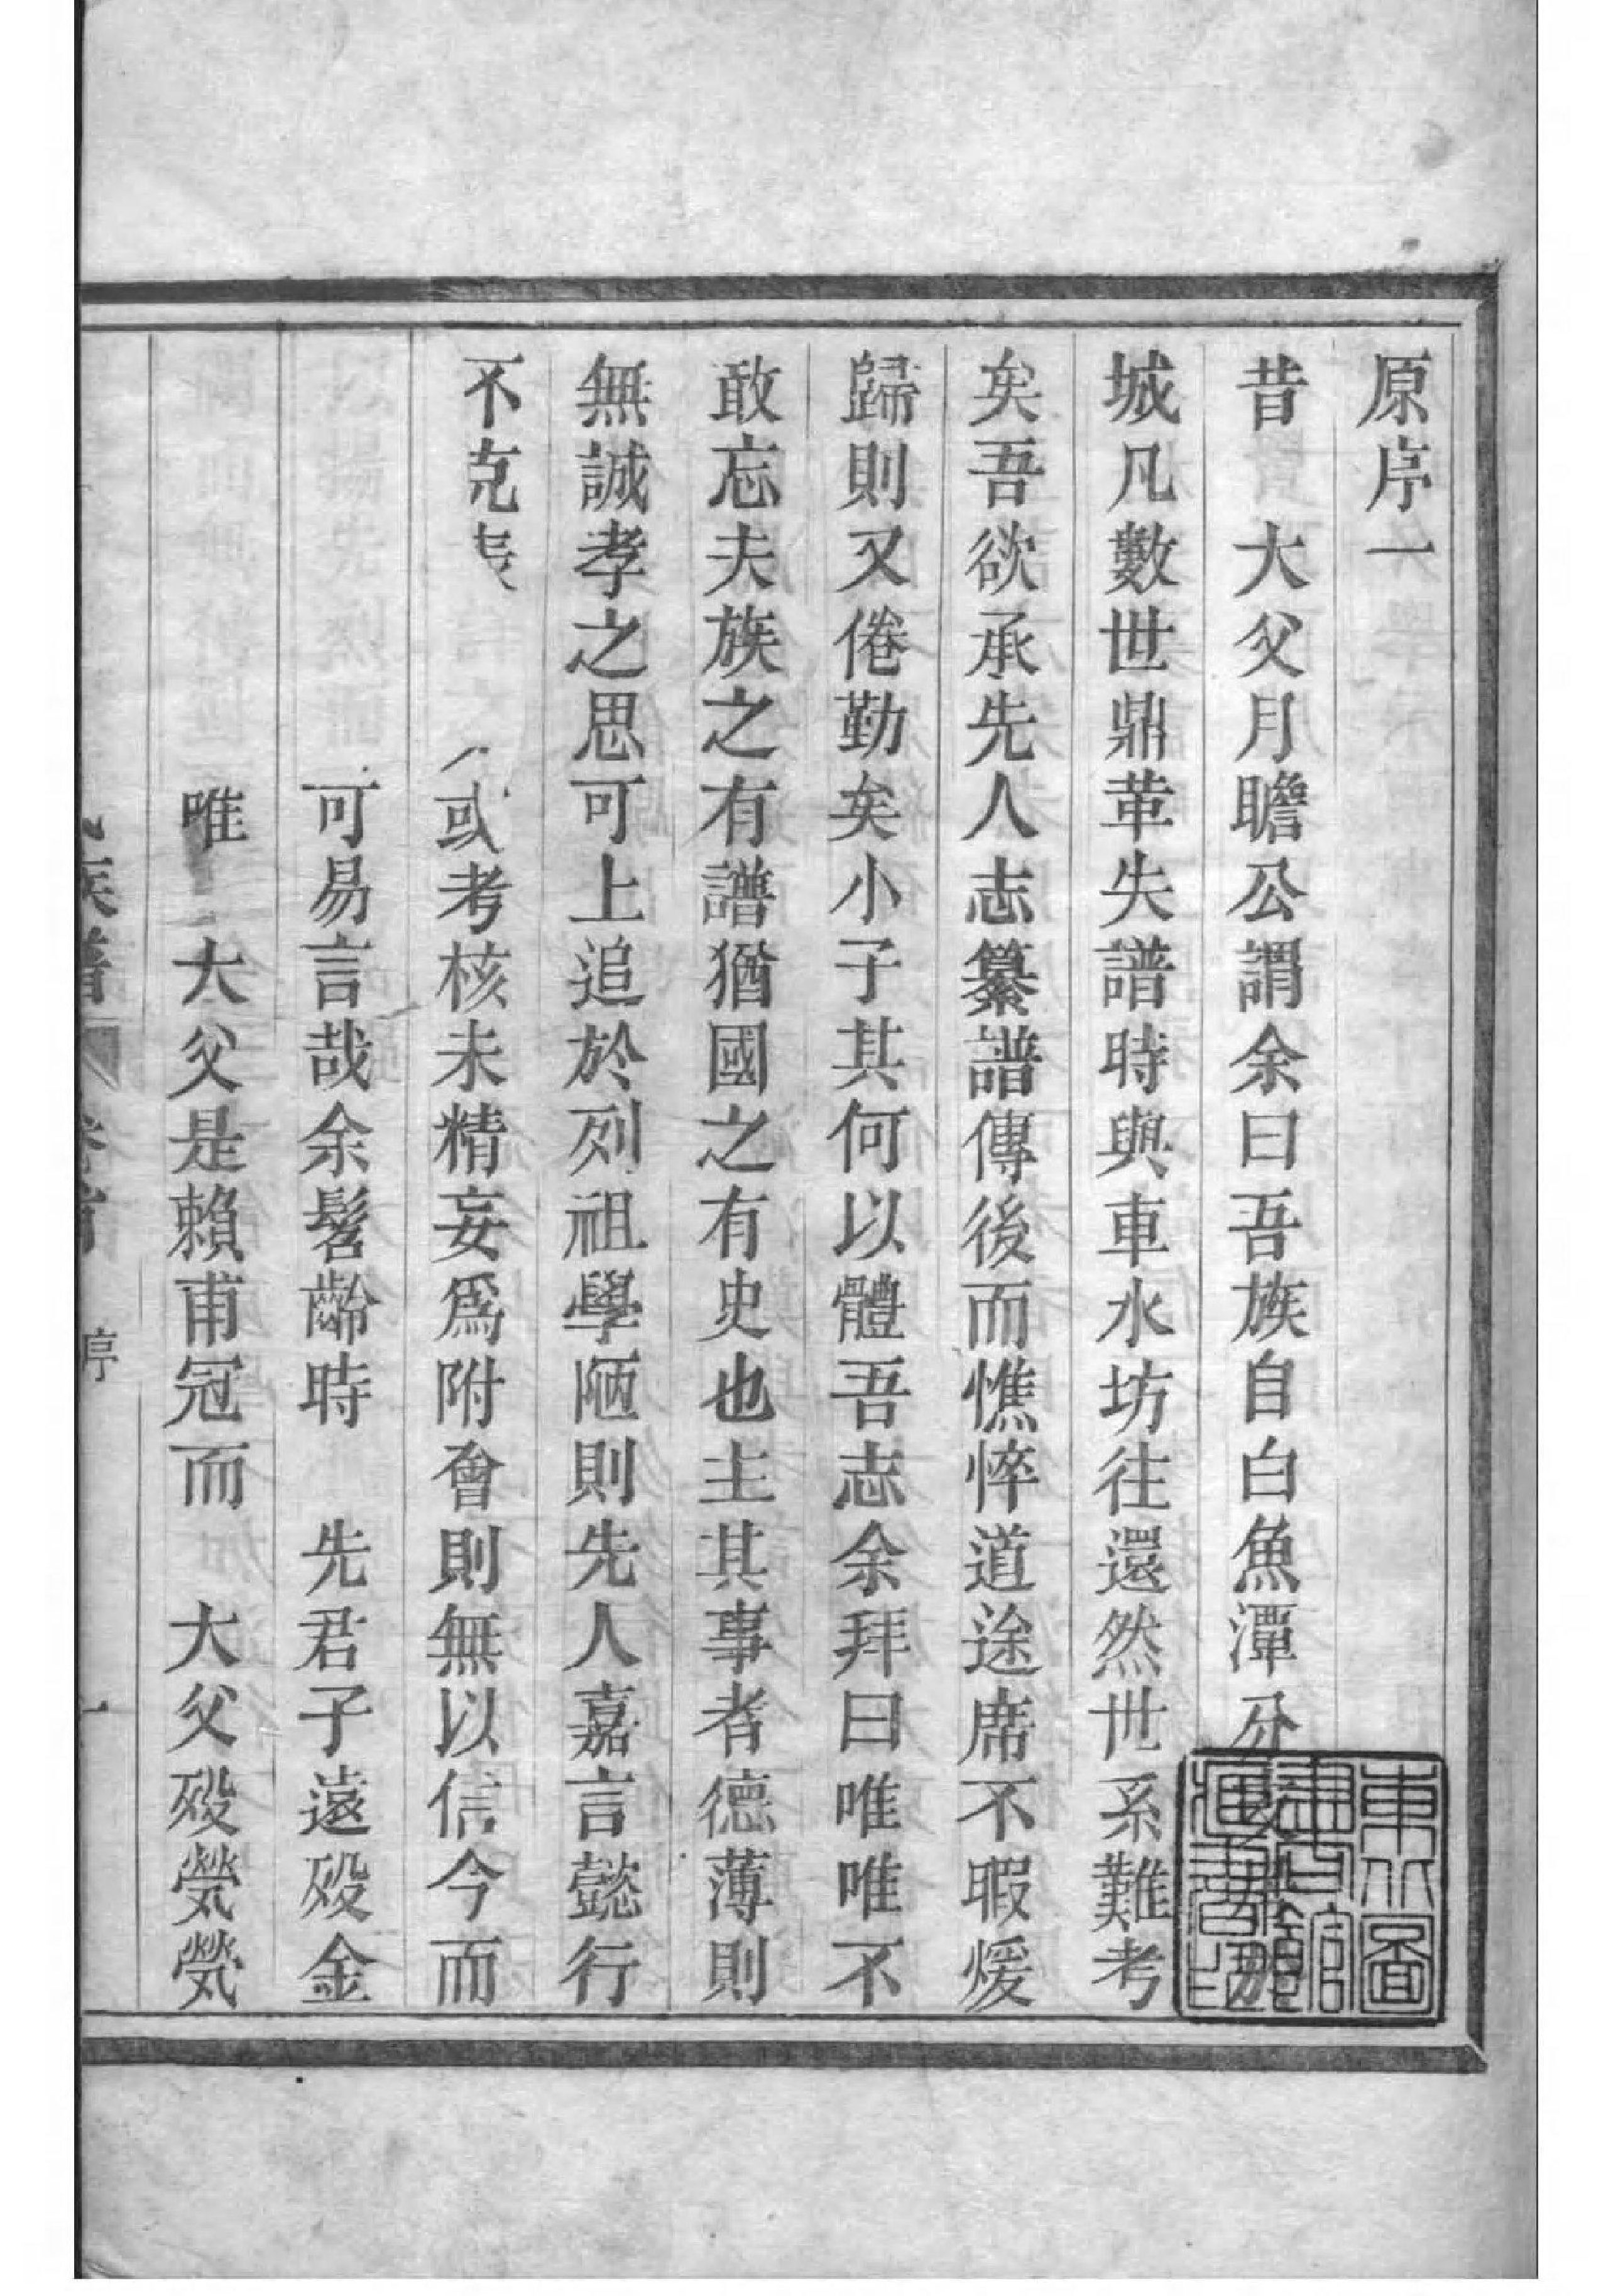 原序一
昔 大父月瞻公謂余曰吾族自白魚潭分
城凡數世鼎革失譜時與車水坊往還然世系難考
矣吾欲承先人志纂譜傳後而憔悴道途席不暇煖
歸則又倦勤矣小子其何以體吾志余拜曰唯唯不
敢忘夫族之有譜猶國之有史也主其事者德薄則
無誠孝之思可上追於列祖學陋則先人嘉言懿行
不克表 或考核未精妄為附會則無以信今而
可易言哉余髫齡時 先君子遠歿金
唯 大父是賴甫冠而 大父歿煢煢
族譜 卷首 序 一